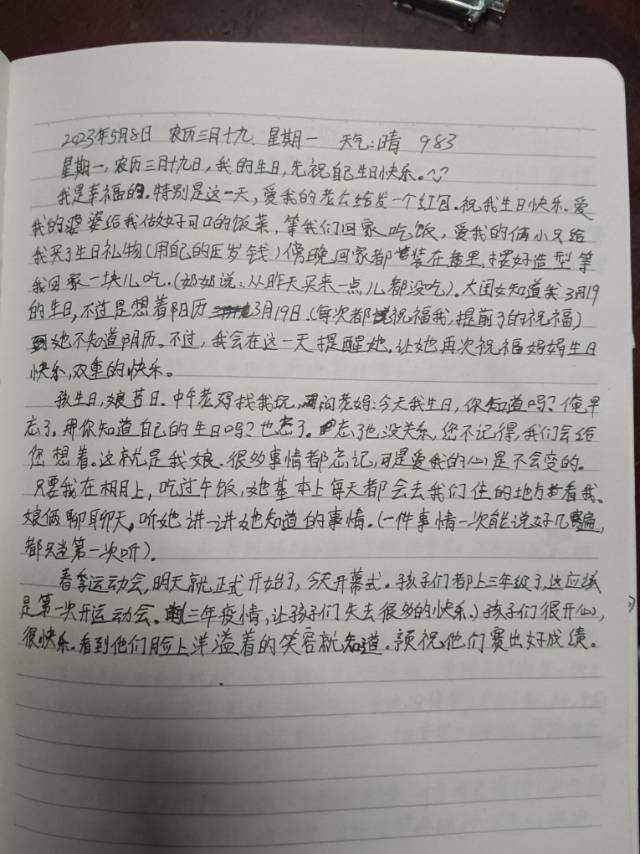 2023年5月8日 农历三月十九、星期一 天气:晴 983
星期一,农历三月十九日,我的生日,先祝自己生日快乐。
我是幸福的。特别是这一天,爱我的老公给发一个红包。祝我生日快乐、爱
我的婆婆给我做好可口的饭菜,等我们回家吃饭,爱我的俩小只给
我买了生日礼物(用自己的压岁钱)傍晚回家都装在番里,摆好造型等
我回家一块儿吃。(奶奶说:从昨天买来一点儿都没吃)。大闺女知道我3月19
的生日,不过是想着阳历3月19日(每次都祝福我,提前了的祝福)
她不知道阴历。不过,我会在这一天提醒她,让她再次祝福妈妈生日
快乐,双重的快乐。
孩生日,娘苦日。中午老妈找我玩,问老妈:今天我生日,你知道吗?俺早
忘了。那你知道自己的生日吗?也忘了。忘了也没关系,您不记得,我们会给
您想着。这就是我娘、很多事情都忘记,可是爱我的心是不会变的。
只要我在相月上,吃过午饭,她基本上每天都会去我们住的地方看我。
娘俩聊聊天,听她讲一讲她知道的事情。(一件事情一次能说好几遍,
都只当第一次听)。
春季运动会,明天就正式开始了,今天开幕式。孩子们都上三年级了,这应该
是第一次开运动会。三年疫情,让孩子们失去很多的快乐,孩子们很开心,
很快乐。看到他们脸上洋溢着的笑容就知道。预祝他们赛出好成绩。